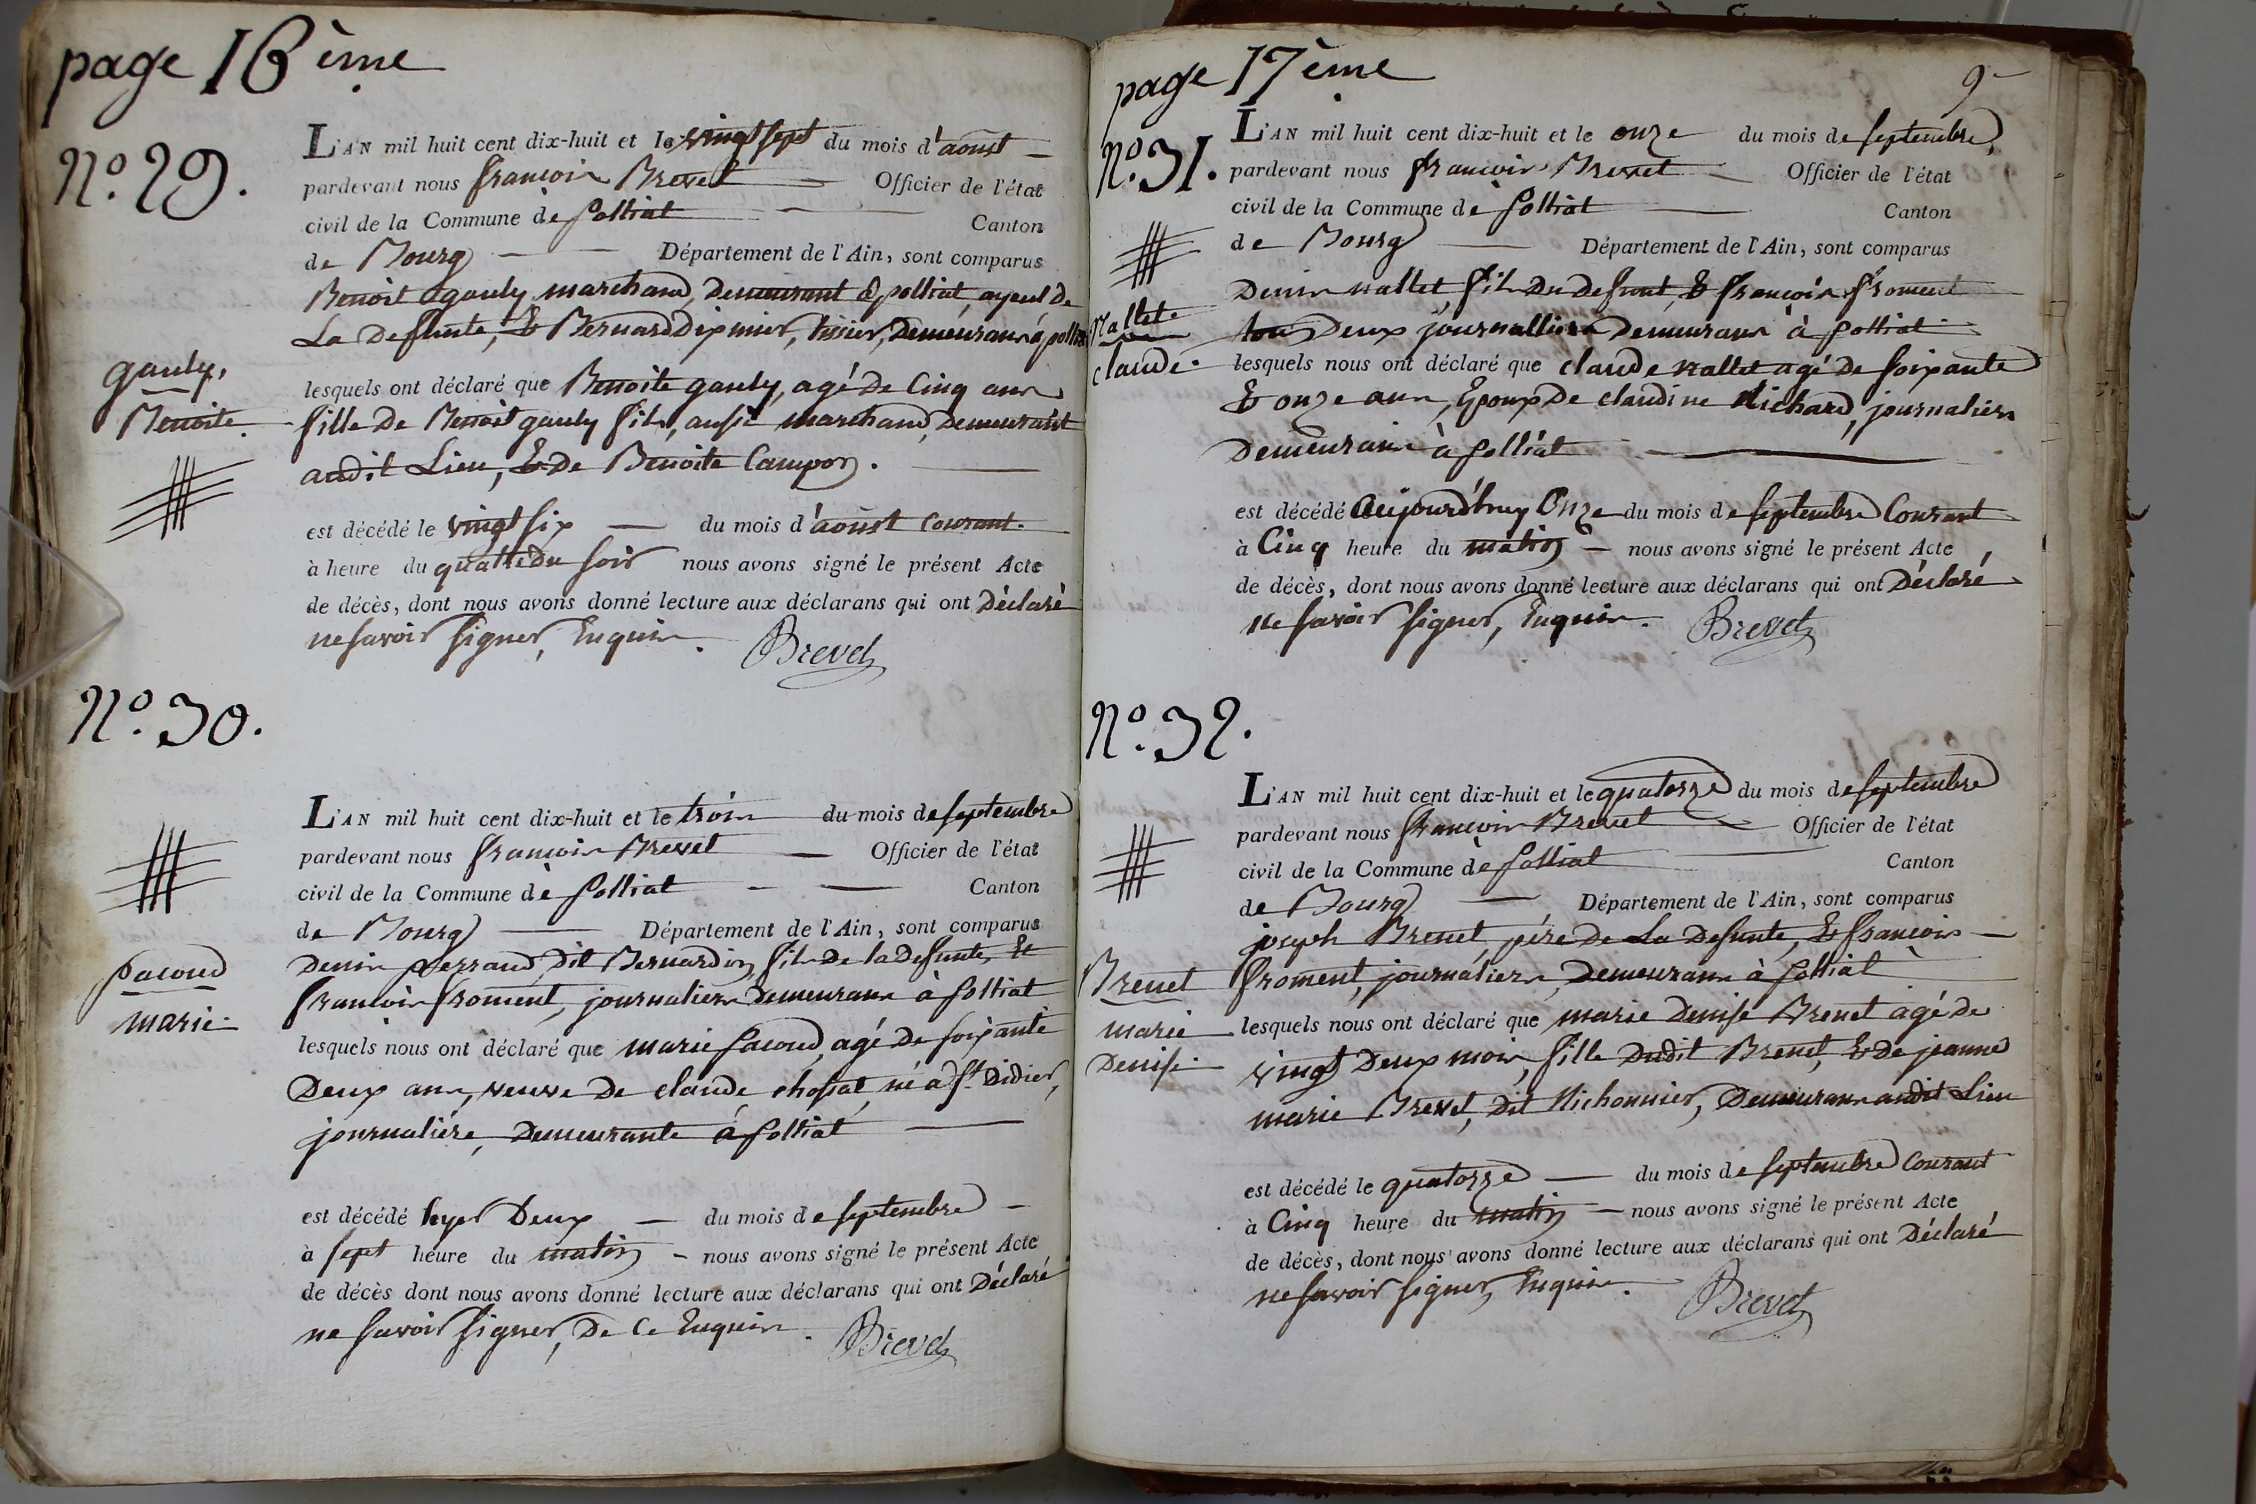 page 16ème
N.º 29.
L'AN mil huit cent dix-huit et le vingt sept du mois d'aoust
pardevant nous françois Brevet Officier de l'état
civil de la Commune de polliat Canton
de Bourg Département de l'Ain, sont comparus
Benoit gauly marchand, Demeurant à polliat, ayeul de
La Defunte, & Bernard Dipmier, tissier, Demeurans à polliat
gauly,
Benoite
lesquels ont déclaré que Benoite gauly, agé de Cinq ans
fille de Benoit gauly fils, aussi marchand, Demeurant
audit Lieu, & de Benoite Campon.
est décédé le vingt six du mois d'aoust Courant.
à heure du quattre du soir nous avons signé le présent Acte
de décès, dont nous avons donné lecture aux déclarans qui ont Déclaré
ne savoir signer, Enquis. Brevet
N.º 30.
L'AN mil huit cent dix-huit et le trois du mois de septembre
pardevant nous françois Brevet Officier de l'état
civil de la Commune de polliat Canton
de Bourg Département de l'Ain, sont comparus
Denis perraud, Dit Bernardin, fils de la Defunte, Et
françois froment, journaliers Demeurans à polliat
pacoud
marie
lesquels nous ont déclaré que marie pacoud, agé de soixante
Deux ans, veuve de claude chossat, né à St. Didier,
journalière, Demeurante à polliat
est décédé hyer Deux du mois de septembre
à sept heure du matin nous avons signé le présent Acte
de décès dont nous avons donné lecture aux déclarans qui ont Déclaré
ne savoir signer, De Ce Enquis. Brevet
page 17ème
9
N.º 31.
L'AN mil huit cent dix-huit et le onze du mois de septembre,
pardevant nous françois Brevet Officier de l'état
civil de la Commune de polliat Canton
de Bourg Département de l'Ain, sont comparus
Denis vallet, fils du Defunt, & françois froment
tous Deux journalliers Demeurans à polliat
vallet
claude
lesquels nous ont déclaré que claude vallet agé de soixante
& onze ans, Epoux De claudine Michard, journaliers
Demeurans à polliat
est décédé aujourd'huy Onze du mois de septembre Courant
à Cinq heure du matin nous avons signé le présent Acte
de décès, dont nous avons donné lecture aux déclarans qui ont Déclaré
ne savoir signer, Enquis. Brevet
N.º 32.
L'AN mil huit cent dix-huit et le quatorze du mois de septembre
pardevant nous françois Brevet Officier de l'état
civil de la Commune de polliat Canton
de Bourg Département de l'Ain, sont comparus
joseph Brevet, père de La Defunte, & françois
froment, journaliers, Demeurans à polliat
Brevet
marie
Denise
lesquels nous ont déclaré que marie Denise Brevet agé de
vingt Deux mois, fille Dudit Brevet, & de jeanne
marie Brevet, Dit Michonnier, Demeurans audit Lieu
est décédé le quatorze du mois de septembre Courant
à Cinq heure du matin nous avons signé le présent Acte
de décès, dont nous avons donné lecture aux déclarans qui ont Déclaré
ne savoir signer, Enquis. Brevet